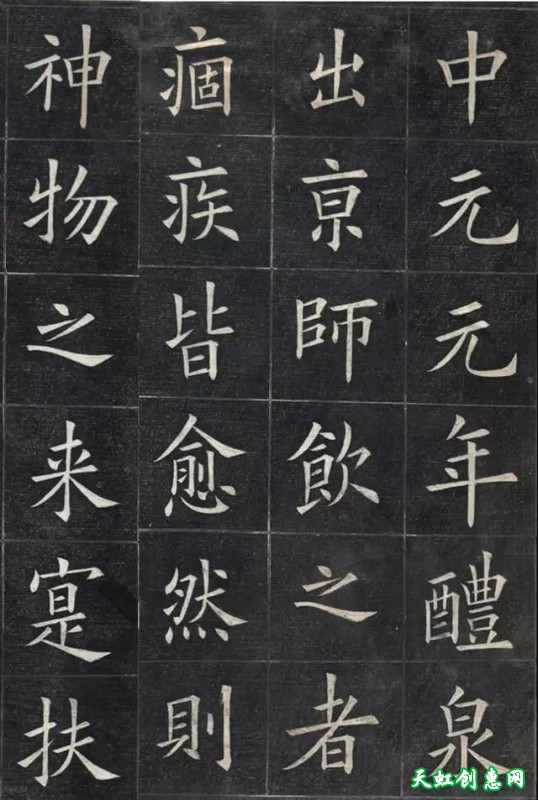 中元元年醴泉
出亰師飲之者
痼疾皆愈然則
神物之来寔扶
天虹创惠网